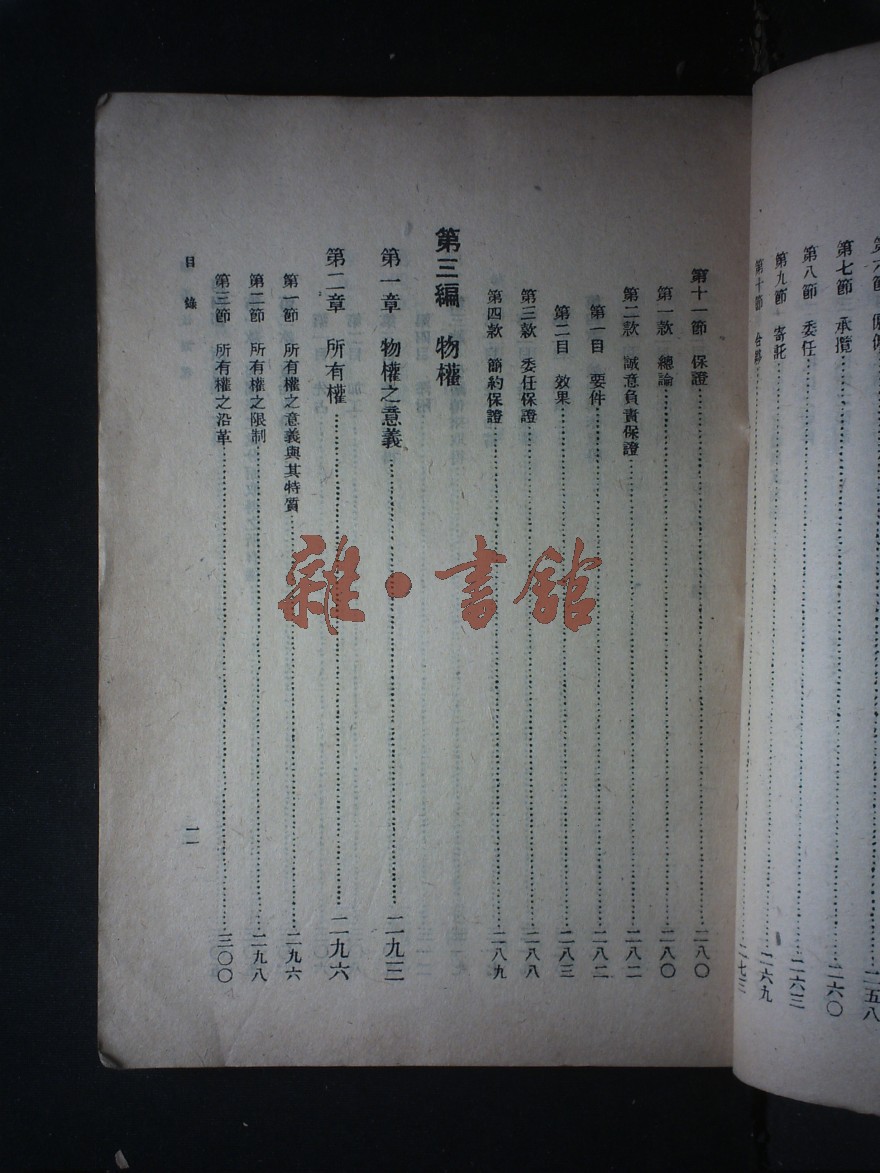 第七節 承攬……二六〇
第八節 委任……二六三
第九節 寄託……二六九
第十節……二七三
第十一節 保證……二八〇
第一款 總論……二八〇
第二款 誠意負責保證……二八二
第一目 要件……二八二
第二目 效果……二八三
第三款 委任保證……二八八
第四款 簡約保證……二八九
第三編 物權
第一章 物權之意義……二九三
第二章 所有權……二九六
第一節 所有權之意義與其特質……二九六
第二節 所有權之限制……二九八
第三節 所有權之沿革……三〇〇
目錄
一一
雜·書館